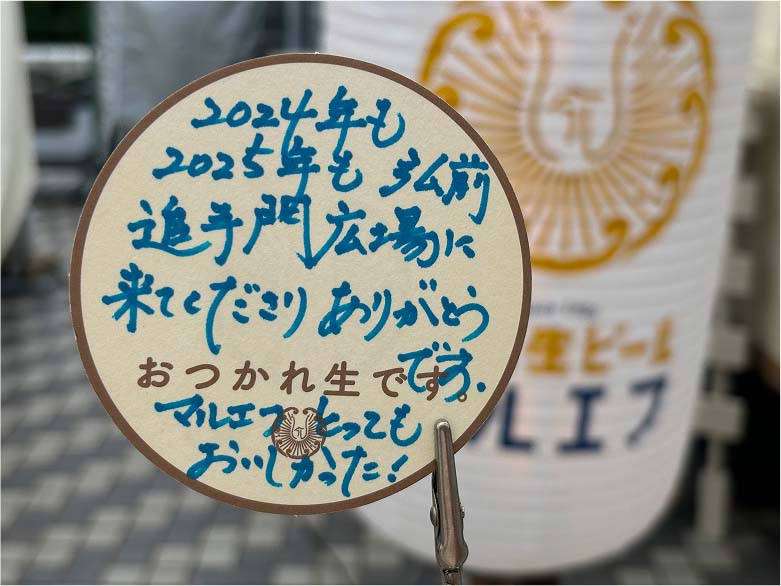 2024年も
2025年も 弘前
追手門広場に
来てくださり ありがとう
です.
おつかれ生です。
マルエフ とっても
おいしかった!
生ビール
ルエフ